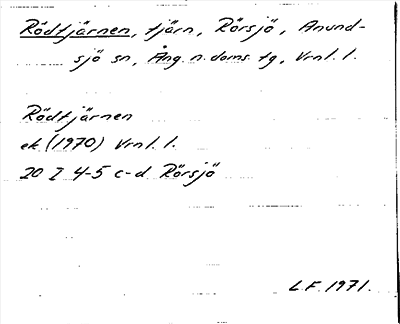 Rödtjärnen, tjärn, Rörsjö, Anund-
sjö sn, Ång. n. doms. tg, Vrnl. l.
Rödtjärnen
ek (1970) Vrnl. l.
20 I 4-5 c-d Rörsjö
L.F. 1971.